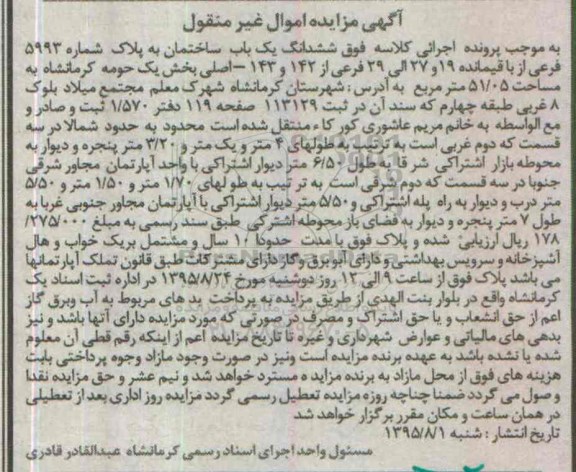 آگهی مزایده اموال غیر منقول
به موجب پرونده اجرائی کلاسه فوق ششدانگ یک باب ساختمان به پلاک شماره ۵۹۹۳
فرعی از باقیمانده ۱۹ و ۲۷ الی ۲۹ فرعی از ۱۴۲ و ۱۴۳ –اصلی بخش یک حومه کرمانشاه به
مساحت ۵۱/۰۵ متر مربع به آدرس: شهرستان کرمانشاه شهرک معلم مجتمع میلاد بلوک
۸ غربی طبقه چهارم که سند آن در ثبت ۱۱۳۱۲۹ صفحه ۱۱۹ دفتر ۱/۵۷۰ ثبت و صادر و
مع الواسطه به خانم مریم عاشوری کور کاء منتقل شده است محدود به حدود شمالا در سه
قسمت که دوم غربی است به ترتیب به طولهای ۴ متر و یک متر و ۳/۲۰ متر پنجره و دیوار به
محوطه بازار اشتراکی شرقا به طول ۶/۵۰ متر دیوار اشتراکی با واحد آپارتمان مجاور شرقی
جنوبا در سه قسمت که دوم شرقی است به ترتیب به طولهای ۱/۷۰ متر و ۱/۵۰ متر و ۵/۵۰
متر درب و دیوار به راه پله اشتراکی و ۵/۵۰ متر دیوار اشتراکی با آپارتمان مجاور جنوبی غربا به
طول ۷ متر پنجره و دیوار به فضای باز محوطه اشترکی طبق سند رسمی به مبلغ ۲۷۵/۰۰۰/
۱۷۸ ریال ارزیابی شده و پلاک فوق با مدت حدودا ۱۰ سال و مشتمل بریک خواب و هال
آشپزخانه و سرویس بهداشتی و دارای آب و برق و گاز دارای مشترکات طبق قانون تملک آپارتمانها
می باشد پلاک فوق از ساعت ۹ الی ۱۲ روز دوشنبه مورخ ۱۳۹۵/۸/۲۴ در اداره ثبت اسناد یک
کرمانشاه واقع در بلوار بنت الهدی از طریق مزایده به پرداخت بد های مربوط به آب وبرق گاز
اعم از حق انشعاب و یا حق اشتراک و مصرف در صورتی که مورد مزایده دارای آنها باشد و نیز
بدهی های مالیاتی و عوارض شهرداری و غیره تا تاریخ مزایده اعم از اینکه رقم قطی آن معلوم
شده یا نشده باشد به عهده برنده مزایده است ونیز در صورت وجود مازاد وجوه پرداختی بابت
هزینه های فوق از محل مازاد به برنده مزایده مسترد خواهد شد و نیم عشر و حق مزایده نقدا
وصول می گردد ضمنا چناچه روزه مزایده تعطیل رسمی گردد مزایده روز اداری بعد از تعطیلی
در همان ساعت و مکان مقرر برگزار خواهد شد
تاریخ انتشار: شنبه ۱۳۹۵/۸/۱
مسئول واحد اجرای اسناد رسمی کرمانشاه عبدالقادر قادری